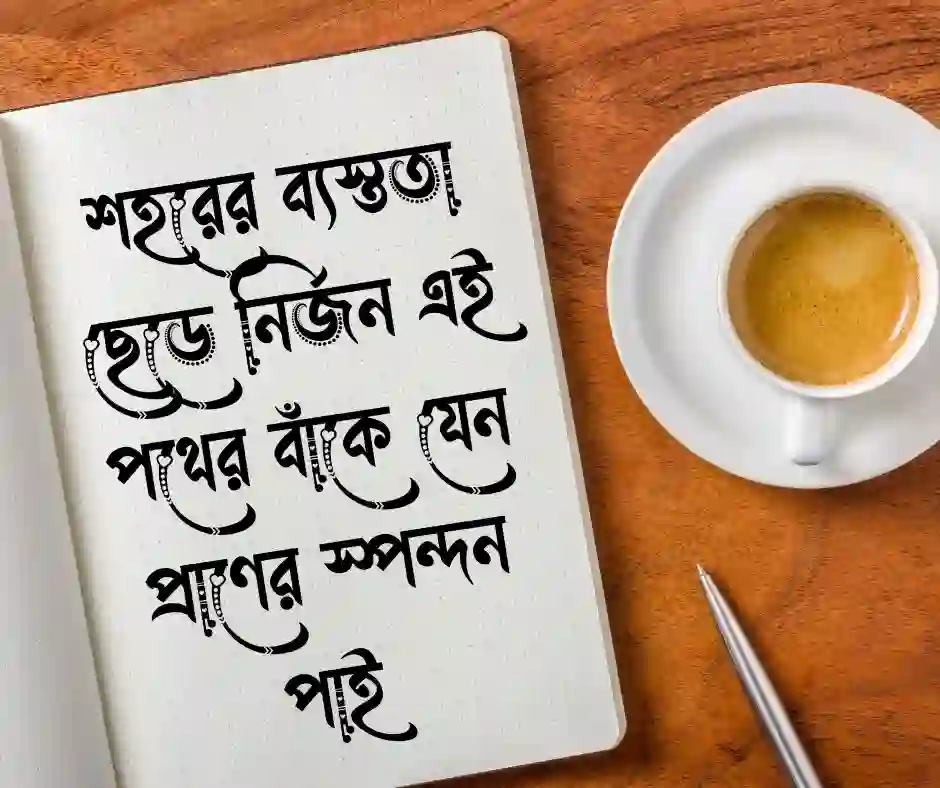 শহরের ব্যস্ততা
ছেড়ে নির্জন এই
পথের বাঁকে যেন
প্রাণের স্পন্দন
পাই